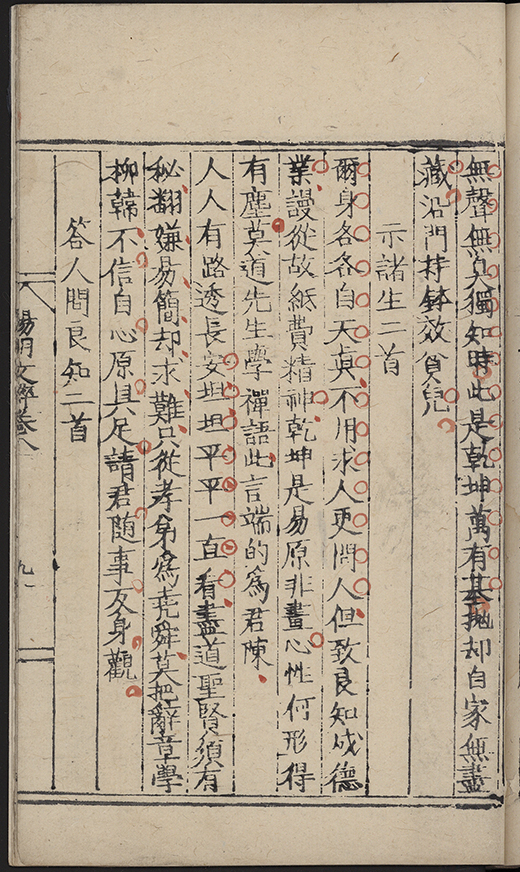 無聲無臭獨知時此是乾坤萬有基抛却自家無盡
藏沿門持鉢效貧兒
示諸生二首
爾身各各自天真不用求人更問人但致良知成德
業謾從故紙費精神乾坤是易原非畫心性何形得
有塵莫道先生學禪語此言端的為君陳
人人有路透長安坦坦平平一直看盡道聖賢須有
秘翻嫌易簡却求難只從孝弟為堯舜莫把辭章學
柳韓不信自心原具足請君隨事反身觀
答人問良知二首
陽明文
九